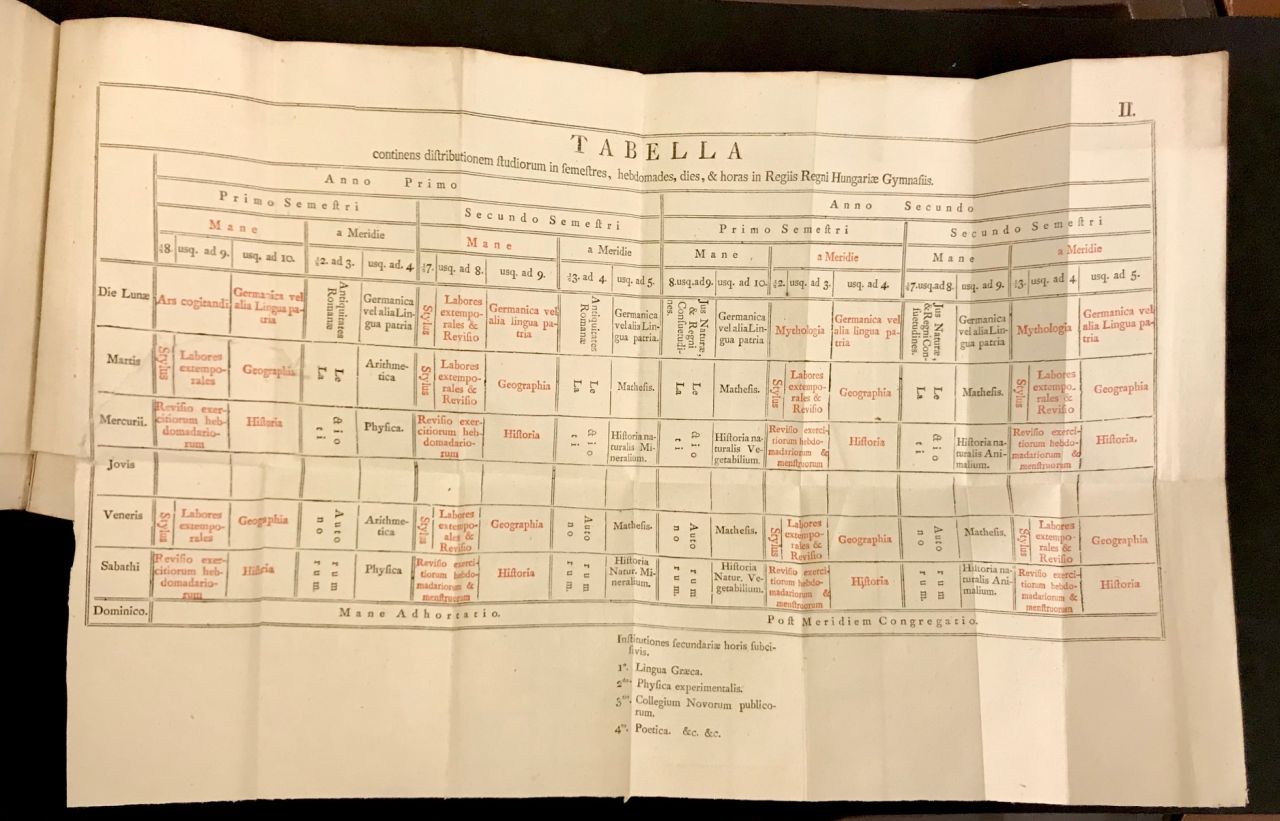 II.
TABELLA
continens diſtributionem ſtudiorum in ſemeſtres, hebdomades, dies, & horas in Regiis Regni Hungariæ Gymnaſiis.
Anno Primo
Anno Secundo
Primo Semeſtri
Secundo Semeſtri
Primo Semeſtri
Secundo Semeſtri
Mane
a Meridie
Mane
a Meridie
Mane
a Meridie
Mane
a Meridie
½8. usq. ad 9. usq. ad 10. ½2. ad 3. usq. ad. 4 ½7. usq. ad 8. usq. ad 9. ½3. ad 4 usq. ad 5. 8. usq. ad 9. usq. ad 10. ½2. usq. ad 3. usq. ad 4 ½7. usq. ad 8. usq. ad 9. ½3. usq. ad 4 usq. ad 5.
Die Lunæ
Ars cogitandi
Germanica vel
alia Lingua pa-
tria
Antiquitates
Romanæ
Germanica
vel alia Lin-
gua patria
Stylus
Labores
extempo-
rales &
Reviſio
Germanica vel
alia lingua pa-
tria
Antiquitates
Romanæ
Germanica
vel alia Lin-
gua patria.
Jus Naturæ,
& Regni
Conſuetudi-
nes.
Germanica
vel alia Lin-
gua patria
Mythologia
Germanica vel
alia lingua pa-
tria
Jus Naturæ,
& Regni Con-
ſuetudines.
Germanica
vel alia Lin-
gua patria
Mythologia
Germanica vel
alia Lingua pa-
tria
Martis
Stylus
Labores
extempo-
rales
Geographia
Le
La
Arithme-
tica
Stylus
Labores
extempo-
rales &
Reviſio
Geographia
Le
La
Matheſis.
Le
La
Matheſis.
Stylus
Labores
extempo-
rales &
Reviſio
Geographia
Le
La
Matheſis.
Stylus
Labores
extempo-
rales &
Reviſio
Geographia
Mercurii.
Reviſio exer-
citiorum heb-
domadario-
rum
Hiſtoria
ctio
ti
Phyſica.
Reviſio exer-
citiorum heb-
domadario-
rum
Hiſtoria
ctio
ti
Hiſtoria na-
turalis Mi-
neralium.
ctio
ti
Hiſtoria na-
turalis Ve-
getabilium.
Reviſio exerci-
tiorum hebdo-
madariorum &
menſtruorum
Hiſtoria
ctio
ti
Hiſtoria na-
turalis Ani-
malium.
Reviſio exerci-
tiorum hebdo-
madariorum &
menſtruorum
Hiſtoria.
Jovis
Veneris
Stylus
Labores
extempo-
rales
Geographia
Auto
no
Arithme-
tica
Stylus
Labores
extempo-
rales &
Reviſio
Geographia
Auto
no
Matheſis.
Auto
no
Matheſis.
Stylus
Labores
extempo-
rales &
Reviſio
Geographia
Auto
no
Matheſis.
Stylus
Labores
extempo-
rales &
Reviſio
Geographia
Sabathi
Reviſio exer-
citiorum heb-
domadario-
rum
Hiſtoria
rum
rum
Phyſica
Reviſio exerci-
tiorum hebdo-
madariorum &
menſtruorum
Hiſtoria
rum
rum.
Hiſtoria
Natur. Mi-
neralium.
rum
rum.
Hiſtoria
Natur. Ve-
getabilium.
Reviſio exerci-
tiorum hebdo-
madariorum &
menſtruorum
Hiſtoria
rum
rum.
Hiſtoria na-
turalis Ani-
malium.
Reviſio exerci-
tiorum hebdo-
madariorum &
menſtruorum
Hiſtoria
Dominico.
Mane Adhortatio.
Poſt Meridiem Congregatio.
Inſtitutiones ſecundariæ horis ſubci-
ſivis.
1º. Lingua Græca.
2do. Phyſica experimentalis.
3tio. Collegium Novorum publico-
rum.
4to. Poetica. &c. &c.